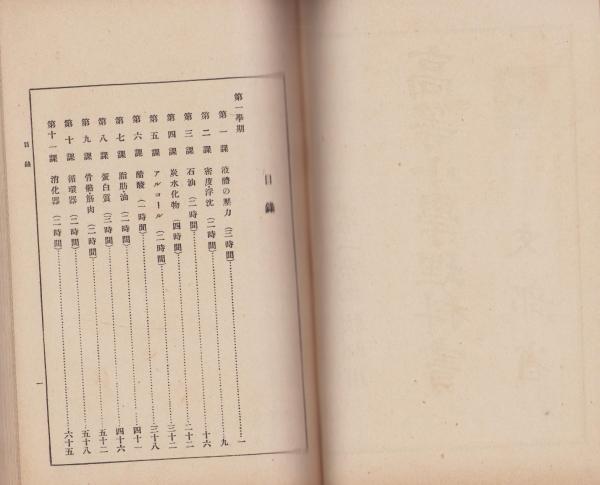 目錄
第一學期
第一課 液體の壓力(三時間)……一
第二課 密度・浮沈(二時間)……九
第三課 石油(二時間)……十六
第四課 炭水化物(四時間)……二十二
第五課 アルコール(二時間)……三十二
第六課 醋酸(一時間)……三十八
第七課 脂肪・油(二時間)……四十一
第八課 蛋白質(三時間)……四十六
第九課 骨骼・筋肉(二時間)……五十二
第十課 循環器(二時間)……五十八
第十一課 消化器(二時間)……六十五
目錄
一